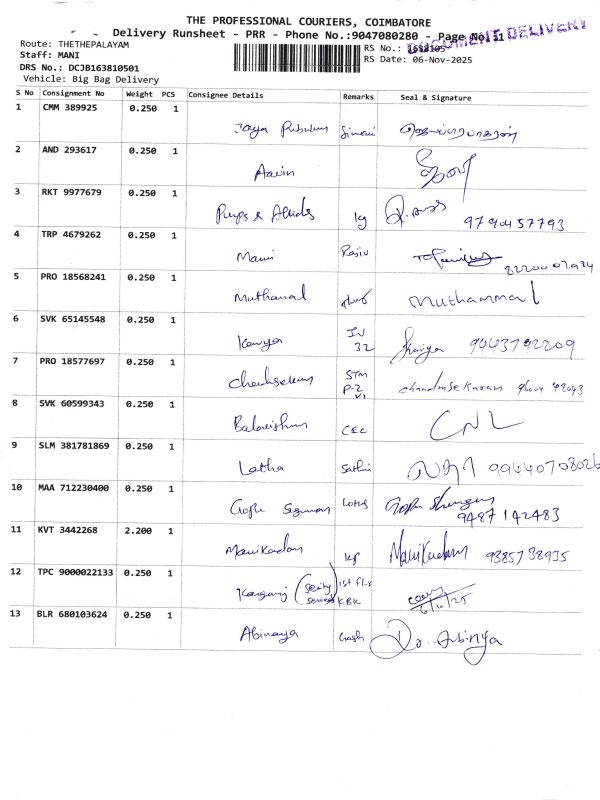 THE PROFESSIONAL COURIERS, COIMBATORE
Delivery Runsheet - PRR - Phone No.:9047080280 - Page No. 1
DOCUMENT DELIVERY
Route: THETHEPALAYAM
RS No.:
Staff: MANI
RS Date: 06-Nov-2025
DRS No.: DCJB163810501
Vehicle: Big Bag Delivery
S No Consignment No Weight PCS Consignee Details Remarks Seal & Signature
1 CMM 389925 0.250 1 Jaya
2 AND 293617 0.250 1 Aavin
3 RKT 9977679 0.250 1 Pumps & Allieds kg 9790457793
4 TRP 4679262 0.250 1 Mani Rajiv
5 PRO 18568241 0.250 1 Muthamal Muthammal
6 SVK 65145548 0.250 1 Kavya 32 9443792209
7 PRO 18577697 0.250 1 P-2 Chandrasekaran
8 SVK 60599343 0.250 1 Balakrishnan CEC
9 SLM 381781869 0.250 1 Latha Sathi லதா 99440708026
10 MAA 712230400 0.250 1 Gopi Lotus 9487142483
11 KVT 3442268 2.200 1 Manikandan kg Manikandan 9385738935
12 TPC 9000022133 0.250 1 1st Flr KBK 6/11/25
13 BLR 680103624 0.250 1 Abinaya Dr. Abinya